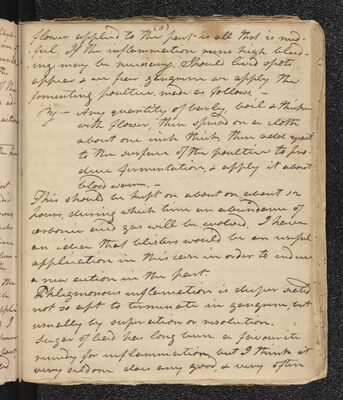 (3)
flower applied to the part is all that is need-
ful, If the inflammation runs high bleed-
ing may be necessary. Should livid spots
appear & we fear gangrene we apply the
fomenting poultice, made as follows, -
Any quantity of barley, boil & thicken
with flower, then spread on a cloth
about one inch thick then add yeast
to the surface of the poultice to pro-
duce fermentation, & apply it about
blood warm. -
This should be kept on about on about 12
hours, during which time an abundance of
carbonic acid gas will be evolved. I have
an idea that blisters would be an useful
application in this case in order to induce
a new action in the part.
Phlegmonous inflamation is deeper seated
not so apt to terminate in gangrene, but
usually by supuration or resolution.
Sugar of lead has long been a favourite
remedy for inflammation, but I think it
very seldom does any good, & very often